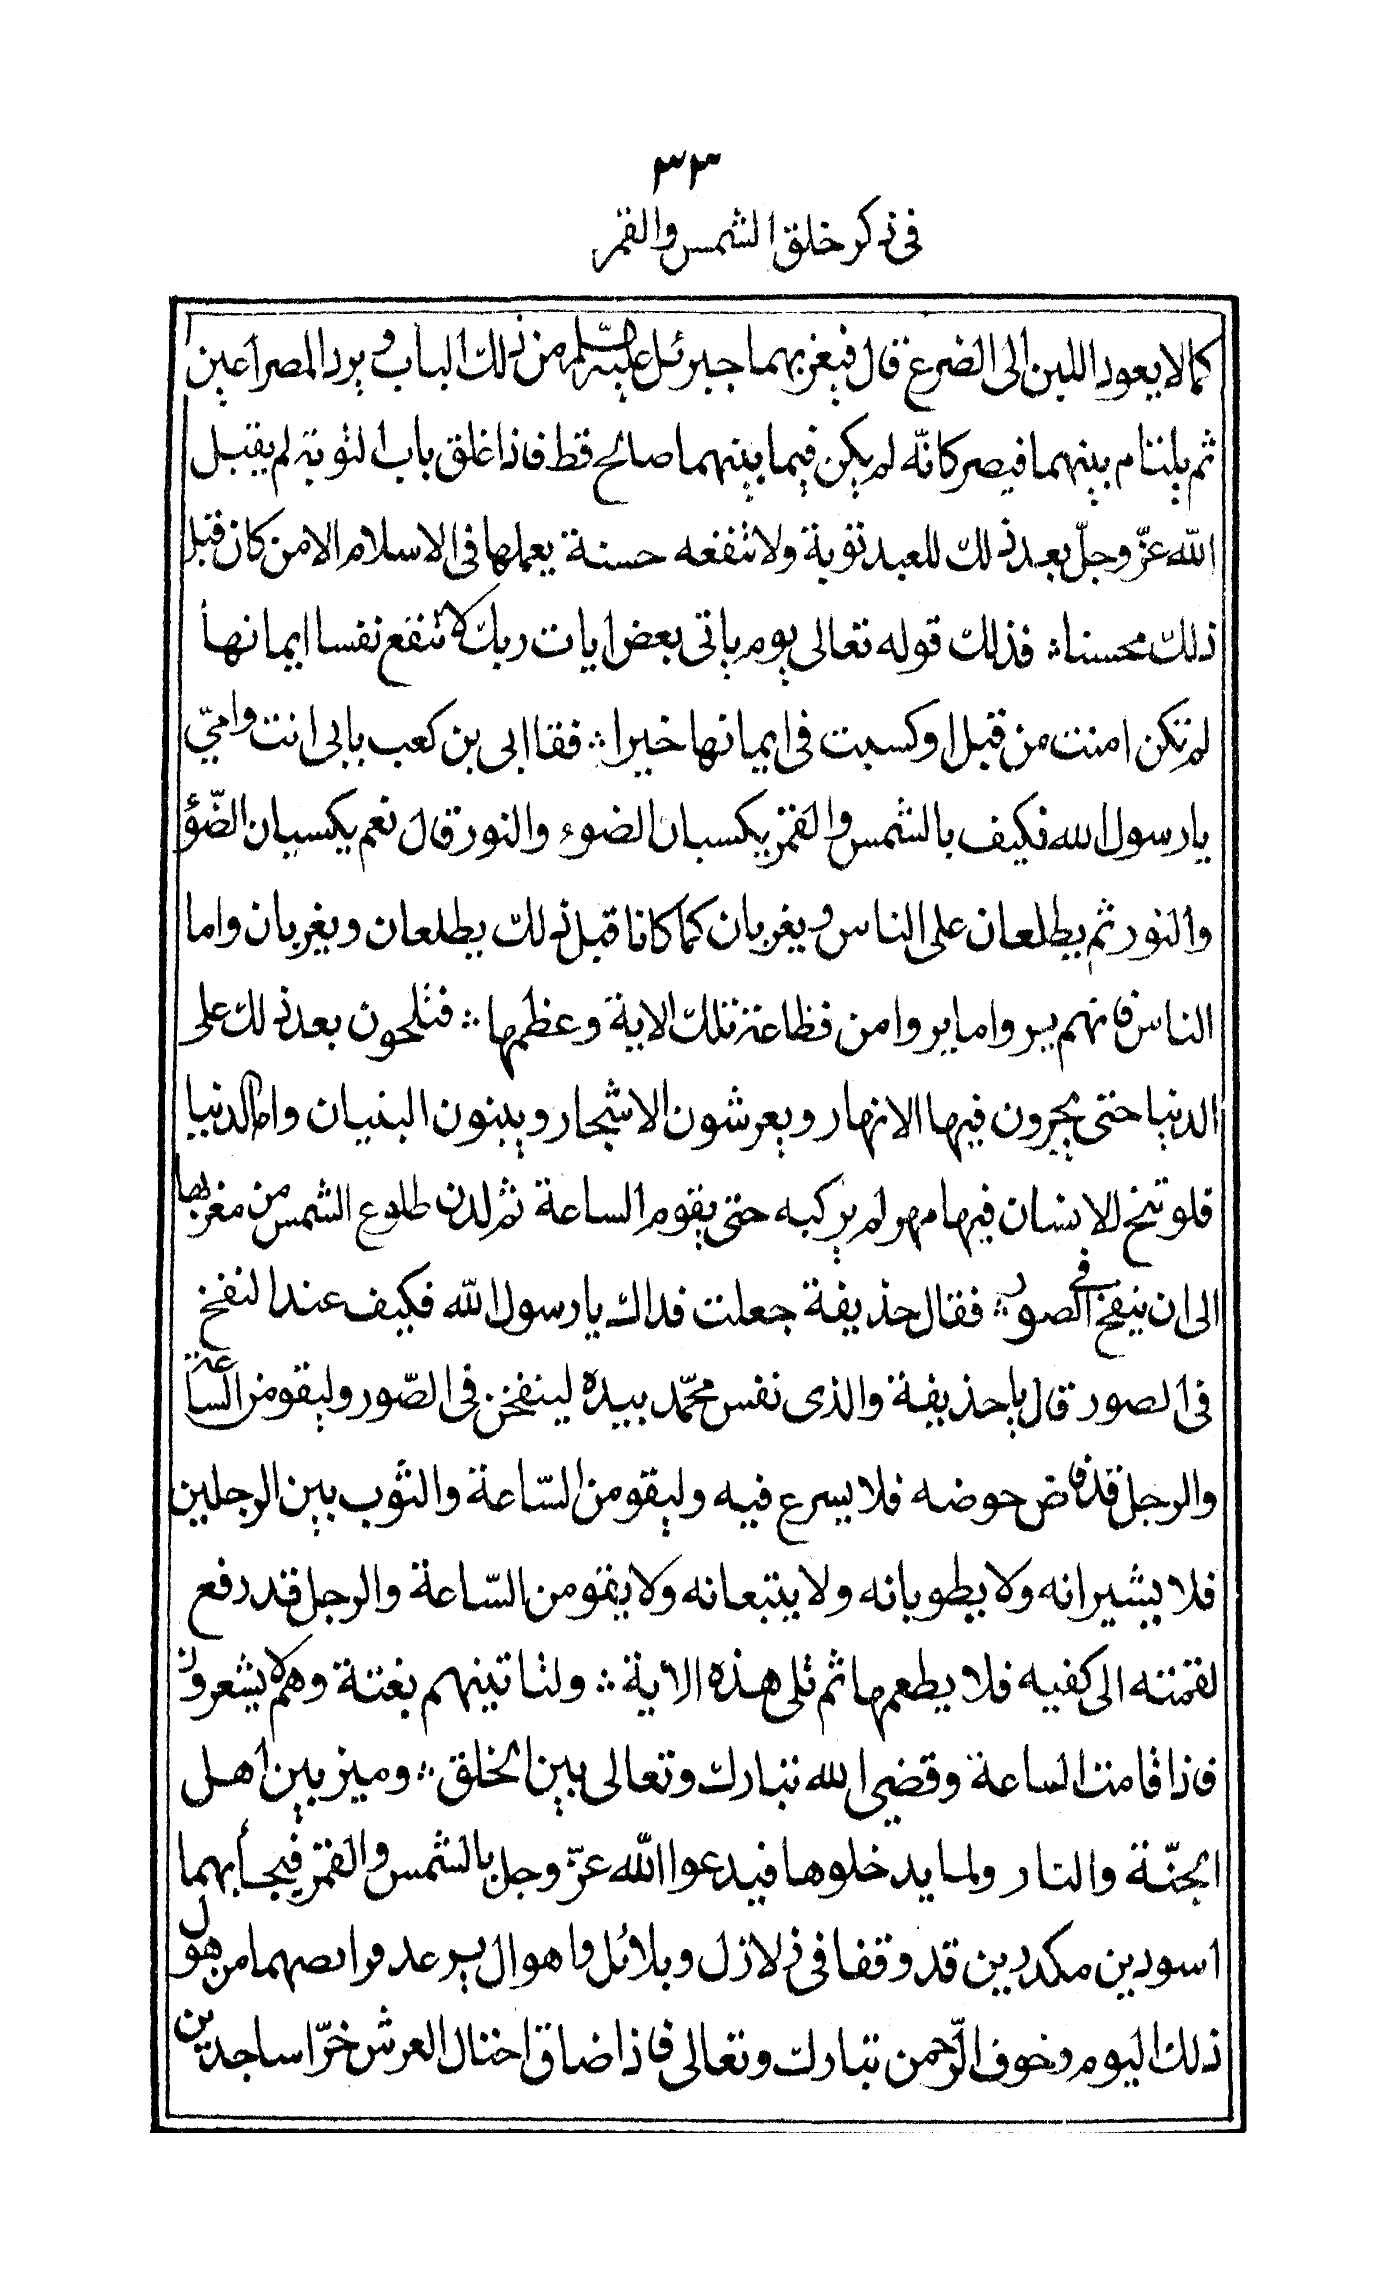 ٣٣
فى ذكر خلق الشمس والقمر
كما لا يعود اللبن الى الضرع قال فيغربهما جبرئل عليه السلم من ذلك الباب و يرد المصراعين
ثم يلتئام بينهما فيصر كانّه لم يكن فيما بينهما صالح قط فاذا غلق باب التوبة لم يقبل
الله عزّ وجلّ بعد ذلك للعبد توبة ولا تنفعه حسنة يعملها فى الاسلام الا من كان قبل
ذلك محسنا؞ فذلك قوله تعالى يوم ياتى بعض ايات ربك لا تنفع نفسا ايمانها
لم تكن امنت من قبل او كسبت فى ايمانها خيرا ؞ فقا ابى بن كعب بابى انت وامىّ
يا رسول الله فكيف بالشمس والقمر يكسبان الضوء والنور قال نعم يكسيان الضّوؤ
والنور ثم يطلعان على الناس و يغربان كما كانا قبل ذلك يطلعان و يغربان واما
الناس فانهم يروا ما يروا من فظاعة تلك الاية وعظمها ؞ فتلحون بعد ذلك على
الدنيا حتى يجرون فيها الانهار ويعرشون الاشجار ويبنون البنيان واما الدنيا
فلو تنخ للانسان فيها مهر لم يركبه حتى يقوم الساعة ثم لدن طلوع الشمس من مغربها
الى ان ينفخ فى الصور ؞ فقال حذيفة جعلت فداك يا رسول الله فكيف عند النفخ
فى الصور قال يا حذيفة والذى نفس محمّد بيده لينفخن فى الصّور وليقومن الساعة
والرجل قد فاض حوضه فلا يسرع فيه وليقومن السّاعة والثوب بين الرجلين
فلا يشيرانه ولا يطويانه ولا يبتبعانه ولا يقومن السّاعة والرجل قد رفع
لقمته الى كفيه فلا يطعمها ثم تلى هذه الاية ؞ ولتاتينهم بغتة وهم لا يشعرون
فاذا قامت الساعة وقضى الله تبارك وتعالى بين الخلق ؞ وميز بين اهل
الجنّة والنار ولما يدخلوها فيدعوا الله عزّ وجل بالشمس والقمر فيجأ بهما
اسودين مكدرين قد وقفا فى زلازل وبلائل واهوال يرعد فرائصهما من هول
ذلك اليوم وخوف الرّحمن تبارك وتعالى فاذا ضاق احتال العرش خرّا ساجدين